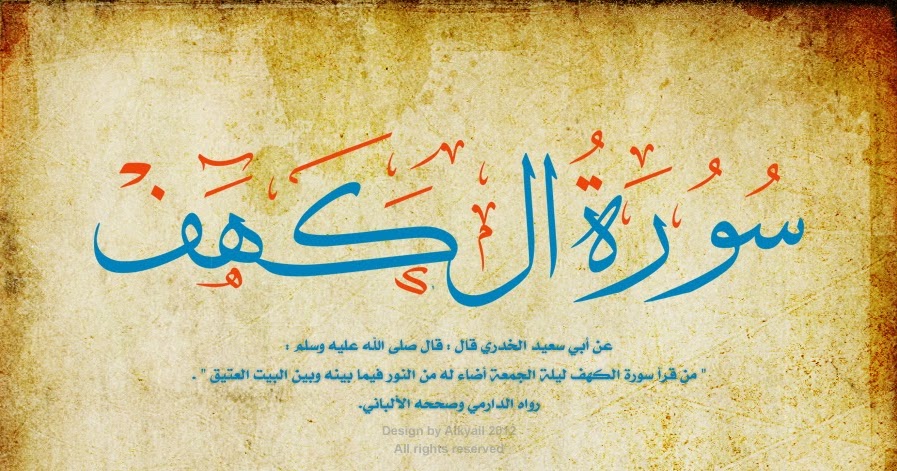 سُورَةُ الكَهَف
عن أبي سعيد الخدري قال : قال صلى الله عليه وسلم :
" من قرأ سورة الكهف ليلة الجمعة أضاء له من النور فيما بينه وبين البيت العتيق " .
رواه الدارمي وصححه الألباني.
Design by Alkyall 2012
All rights reserved